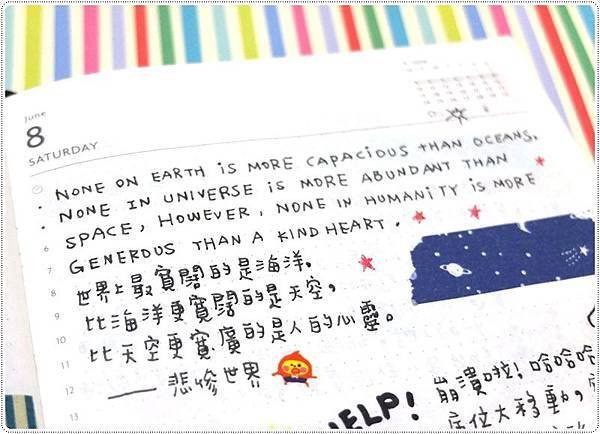 June
8
SATURDAY
NONE ON EARTH IS MORE CAPACIOUS THAN OCEANS.
NONE IN UNIVERSE IS MORE ABUNDANT THAN
SPACE, HOWEVER, NONE IN HUMANITY IS MORE
GENEROUS THAN A KIND HEART.
世界上最寬闊的是海洋,
比海洋更寬闊的是天空,
比天空更寬廣的是人的心靈。
—— 悲慘世界
6
7
8
9
10
11
12
13
HELP!
崩潰啦! 哈哈哈
底位大移動,